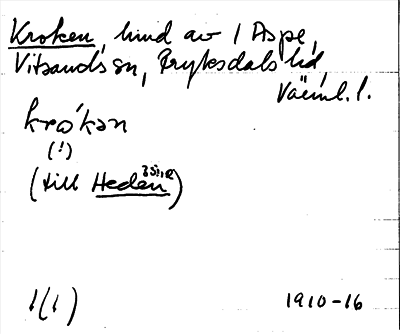 Kroken, hmd av 1 Aspe,
Vitsands sn, Fryksdals hd,
Värml. l.
krokan
(!)
(till Heden)
1(1) 1910-16